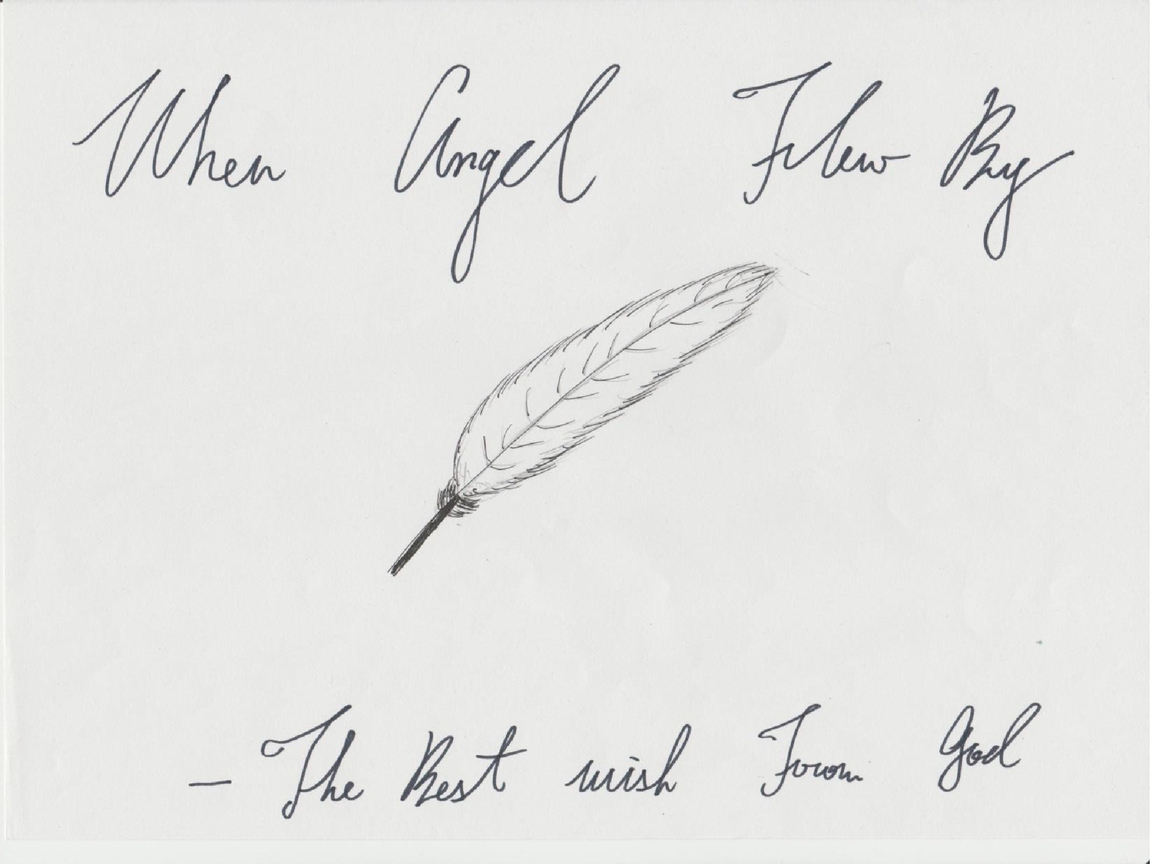 When Angel Flew By
— The Best wish From God